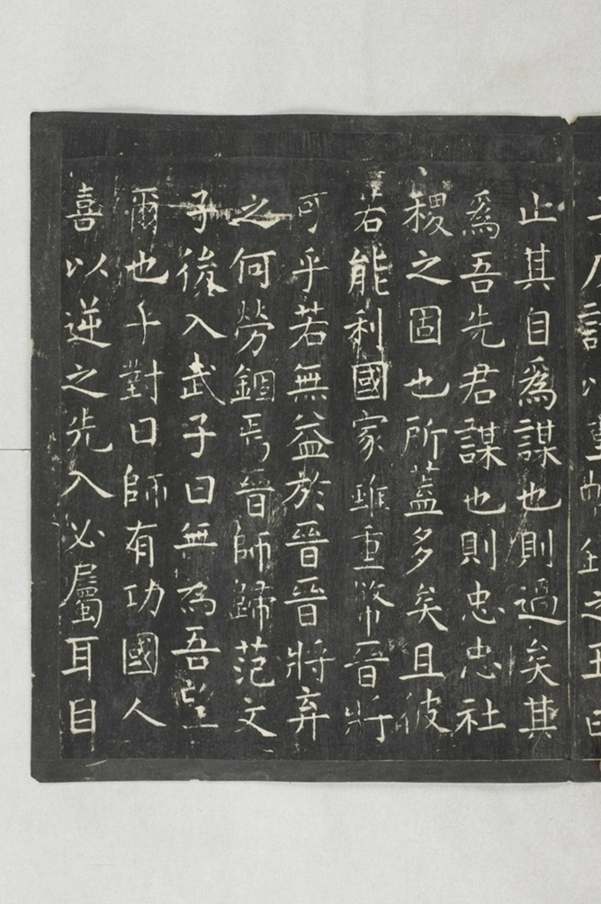 止其自爲謀也則過矣其
爲吾先君謀也則忠忠社
稷之固也所蓋多矣且彼
若能利國家雖重幣晉將
可乎若無益於晉晉將弃
之何勞錮焉晉師歸范文
子後入武子曰無為吾望
爾也乎對曰師有功國人
喜以逆之先入必屬耳目